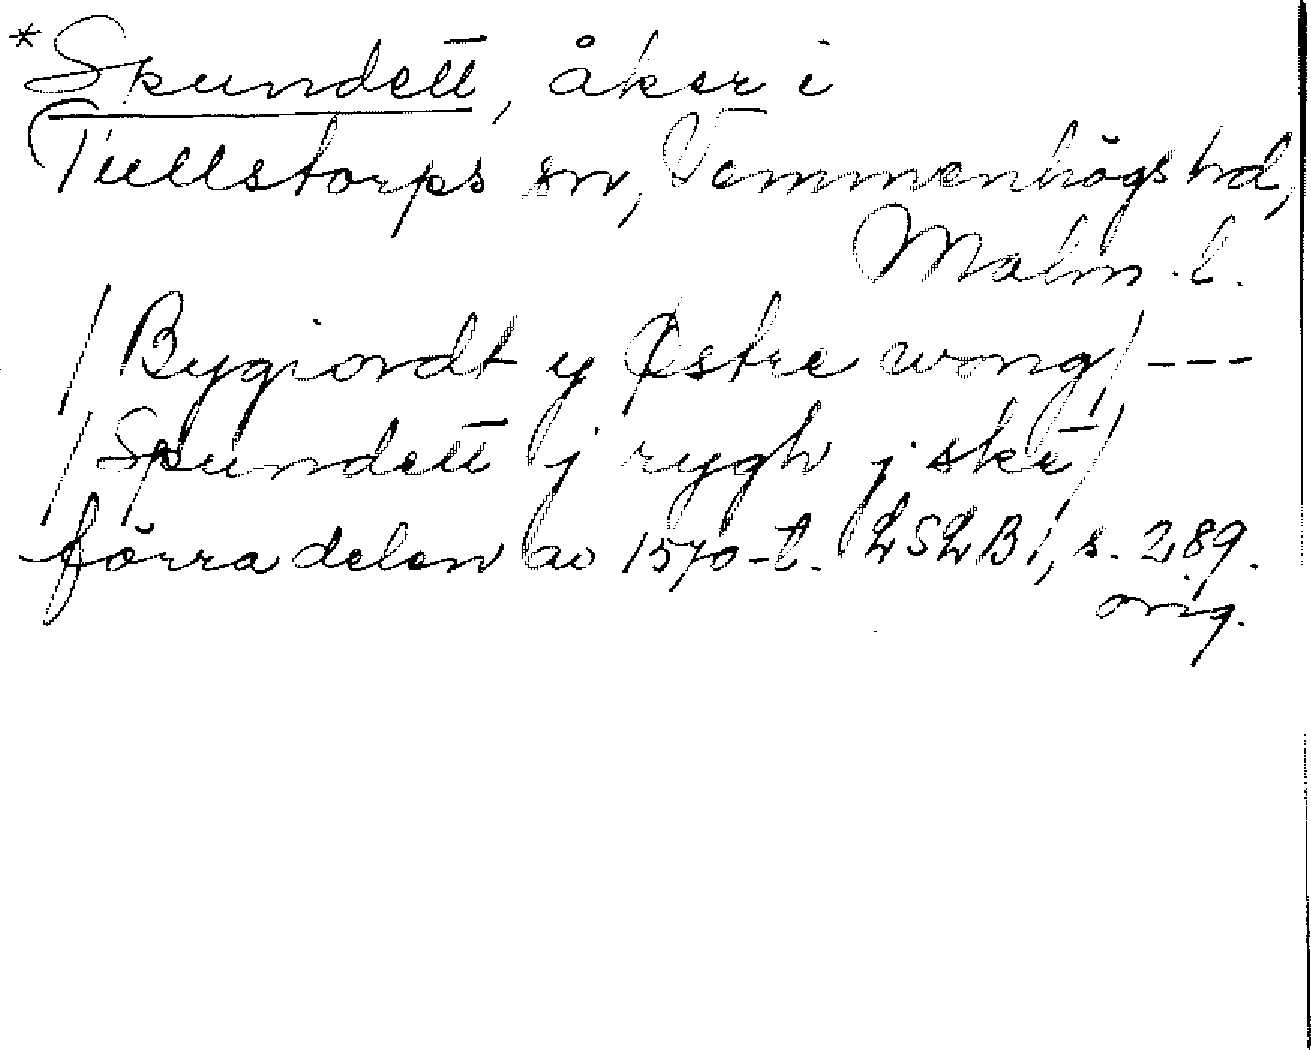 *Spundett, åker i
Tullstorps sn, Vemmenhögs hd,
Malm. l.
/Bygiordt y Østre wong/ ---
/Spundett j rygh j ske/
förra delen av 1570-t. LSLB 1, s. 289.
orig.